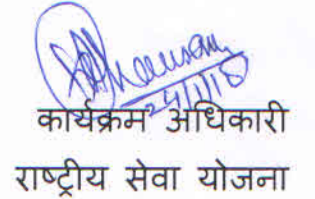 24/1/18
कार्यक्रम अधिकारी
राष्ट्रीय सेवा योजना